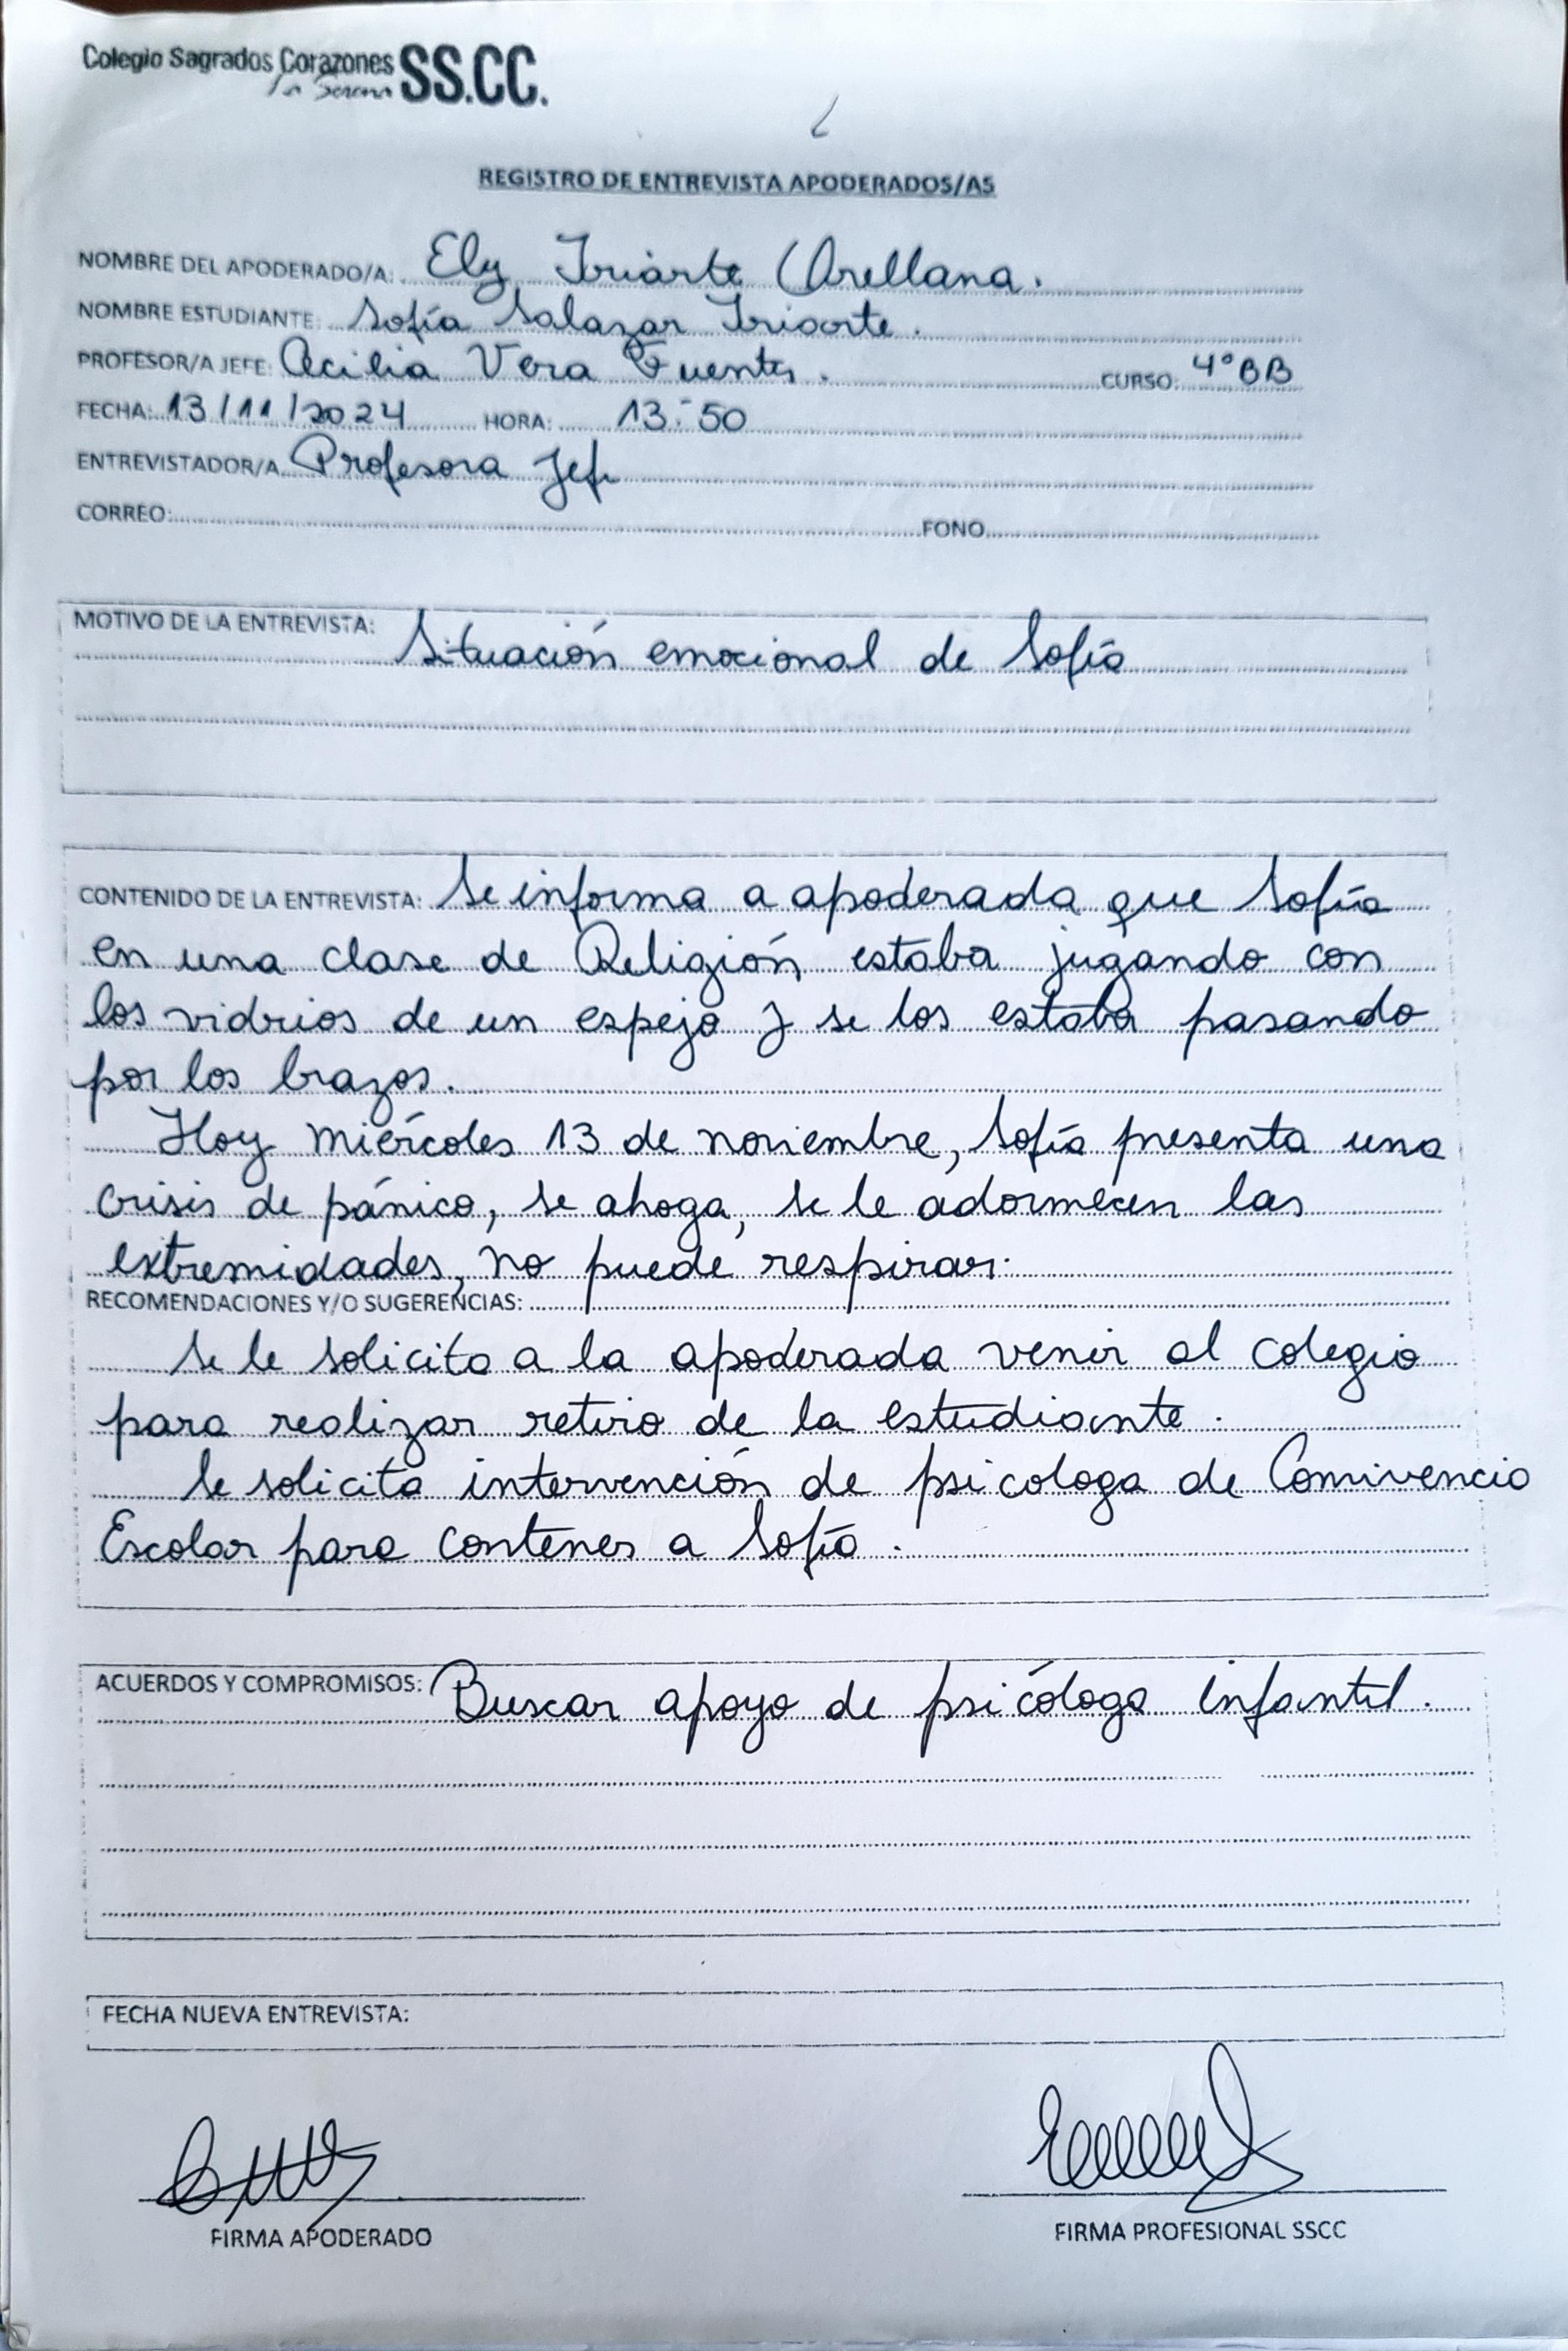 Colegio Sagrados Corazones SS.CC.
La Serena
REGISTRO DE ENTREVISTA APODERADOS/AS
NOMBRE DEL APODERADO/A: Ely Iriarte Arellana.
NOMBRE ESTUDIANTE: Sofía Salazar Iriarte.
PROFESOR/A JEFE: Cecilia Vera Fuentes. CURSO: 4°BB
FECHA: 13/11/2024 HORA: 13:50
ENTREVISTADOR/A Profesora Jefe
CORREO: FONO
MOTIVO DE LA ENTREVISTA: Situación emocional de Sofía
CONTENIDO DE LA ENTREVISTA: Se informa a apoderada que Sofía
en una clase de Religión estaba jugando con
los vidrios de un espejo y se los estaba pasando
por los brazos.
Hoy miércoles 13 de noviembre, Sofía presenta una
crisis de pánico, se ahoga, se le adormecen las
extremidades, no puede respirar.
RECOMENDACIONES Y/O SUGERENCIAS:
Se le solicita a la apoderada venir al colegio
para realizar retiro de la estudiante.
Se solicita intervención de psicologa de Convivencia
Escolar para contener a Sofía.
ACUERDOS Y COMPROMISOS: Buscar apoyo de psicóloga infantil.
FECHA NUEVA ENTREVISTA:
FIRMA APODERADO FIRMA PROFESIONAL SSCC